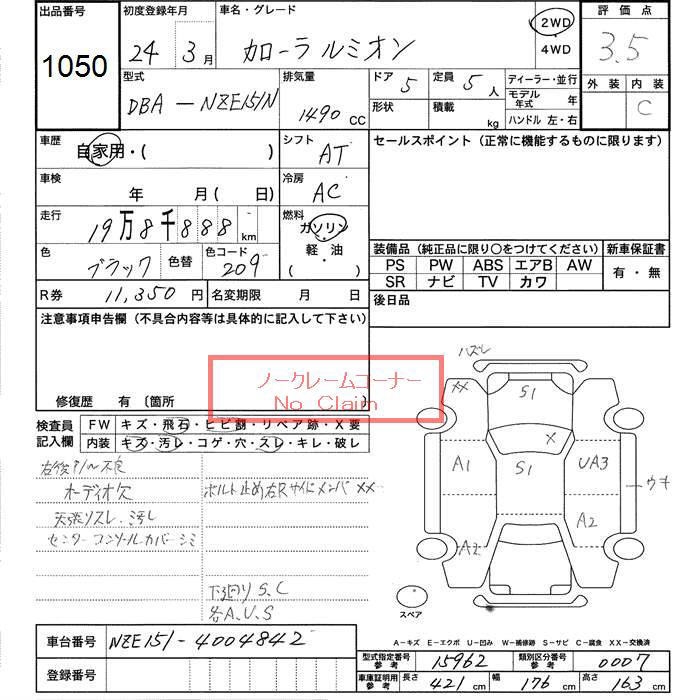 出品番号
1050
初度登録年月
24年 3月
車名・グレード
カローラルミオン
2WD
4WD
評価点
3.5
外装 内装
C
型式
DBA-NZE151N
排気量
1490 cc
ドア 5
形状
定員 5 人
積載 kg
ディーラー・並行
モデル年式 年
ハンドル 左・右
車歴
自家用・( )
シフト
AT
セールスポイント(正常に機能するものに限ります)
車検
年 月 ( 日)
冷房
AC
走行
19万8千888 km
燃料
ガソリン
軽・油
( )
色
ブラック
色替
色コード
209
装備品(純正品に限り○をつけてください)
新車保証書
PS PW ABS エアB AW
SR ナビ TV カワ
有・無
R券 11,350 円
名変期限 月 日
後日品
注意事項申告欄(不具合内容等は具体的に記入して下さい)
ノークレームコーナー
No Claim
修復歴 有 〔箇所
検査員
記入欄
FW キズ・飛石・ヒビ割・リペア跡・X要
内装 キズ・汚レ・コゲ・穴・スレ・キレ・破レ
オーディオ欠
ボルト止め右Rサイドメンバ XX
天張リスレ・汚レ
センターコンソールカバーシミ
下廻りS,C
各A,U,S
ハズレ
XX
S1
X
A1
S1
UA3
ウキ
A2
A2
スペア
A-キズ E-エクボ U-凹み W-補修跡 S-サビ C-腐食 XX-交換済
車台番号 NZE151-4004842
登録番号
型式指定番号
参考
15962
類別区分番号
参考
0007
車庫証明用
参考
長さ 421 cm 幅 176 cm 高さ 163 cm